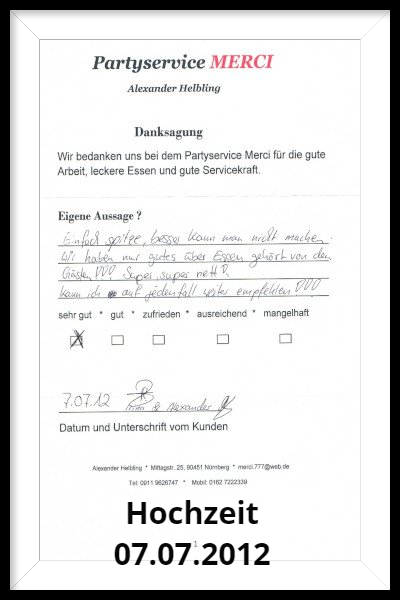 Partyservice MERCI
Alexander Helbling
Danksagung
Wir bedanken uns bei dem Partyservice Merci für die gute
Arbeit, leckere Essen und gute Servicekraft.
Eigene Aussage ?
Einfach spitze, besser kann man nicht machen.
Wir haben nur gutes über Essen gehört von den
Gästen !!! Super, super nett !
kann ich auf jedenfall weiter empfehlen !!!
sehr gut * gut * zufrieden * ausreichend * mangelhaft
7.07.12 & Alexander
Datum und Unterschrift vom Kunden
Alexander Helbling * Mittagstr. 25, 90451 Nürnberg * merci.777@web.de
Tel: 0911 9626747 * Mobil: 0162 7222339
1
Hochzeit
07.07.2012